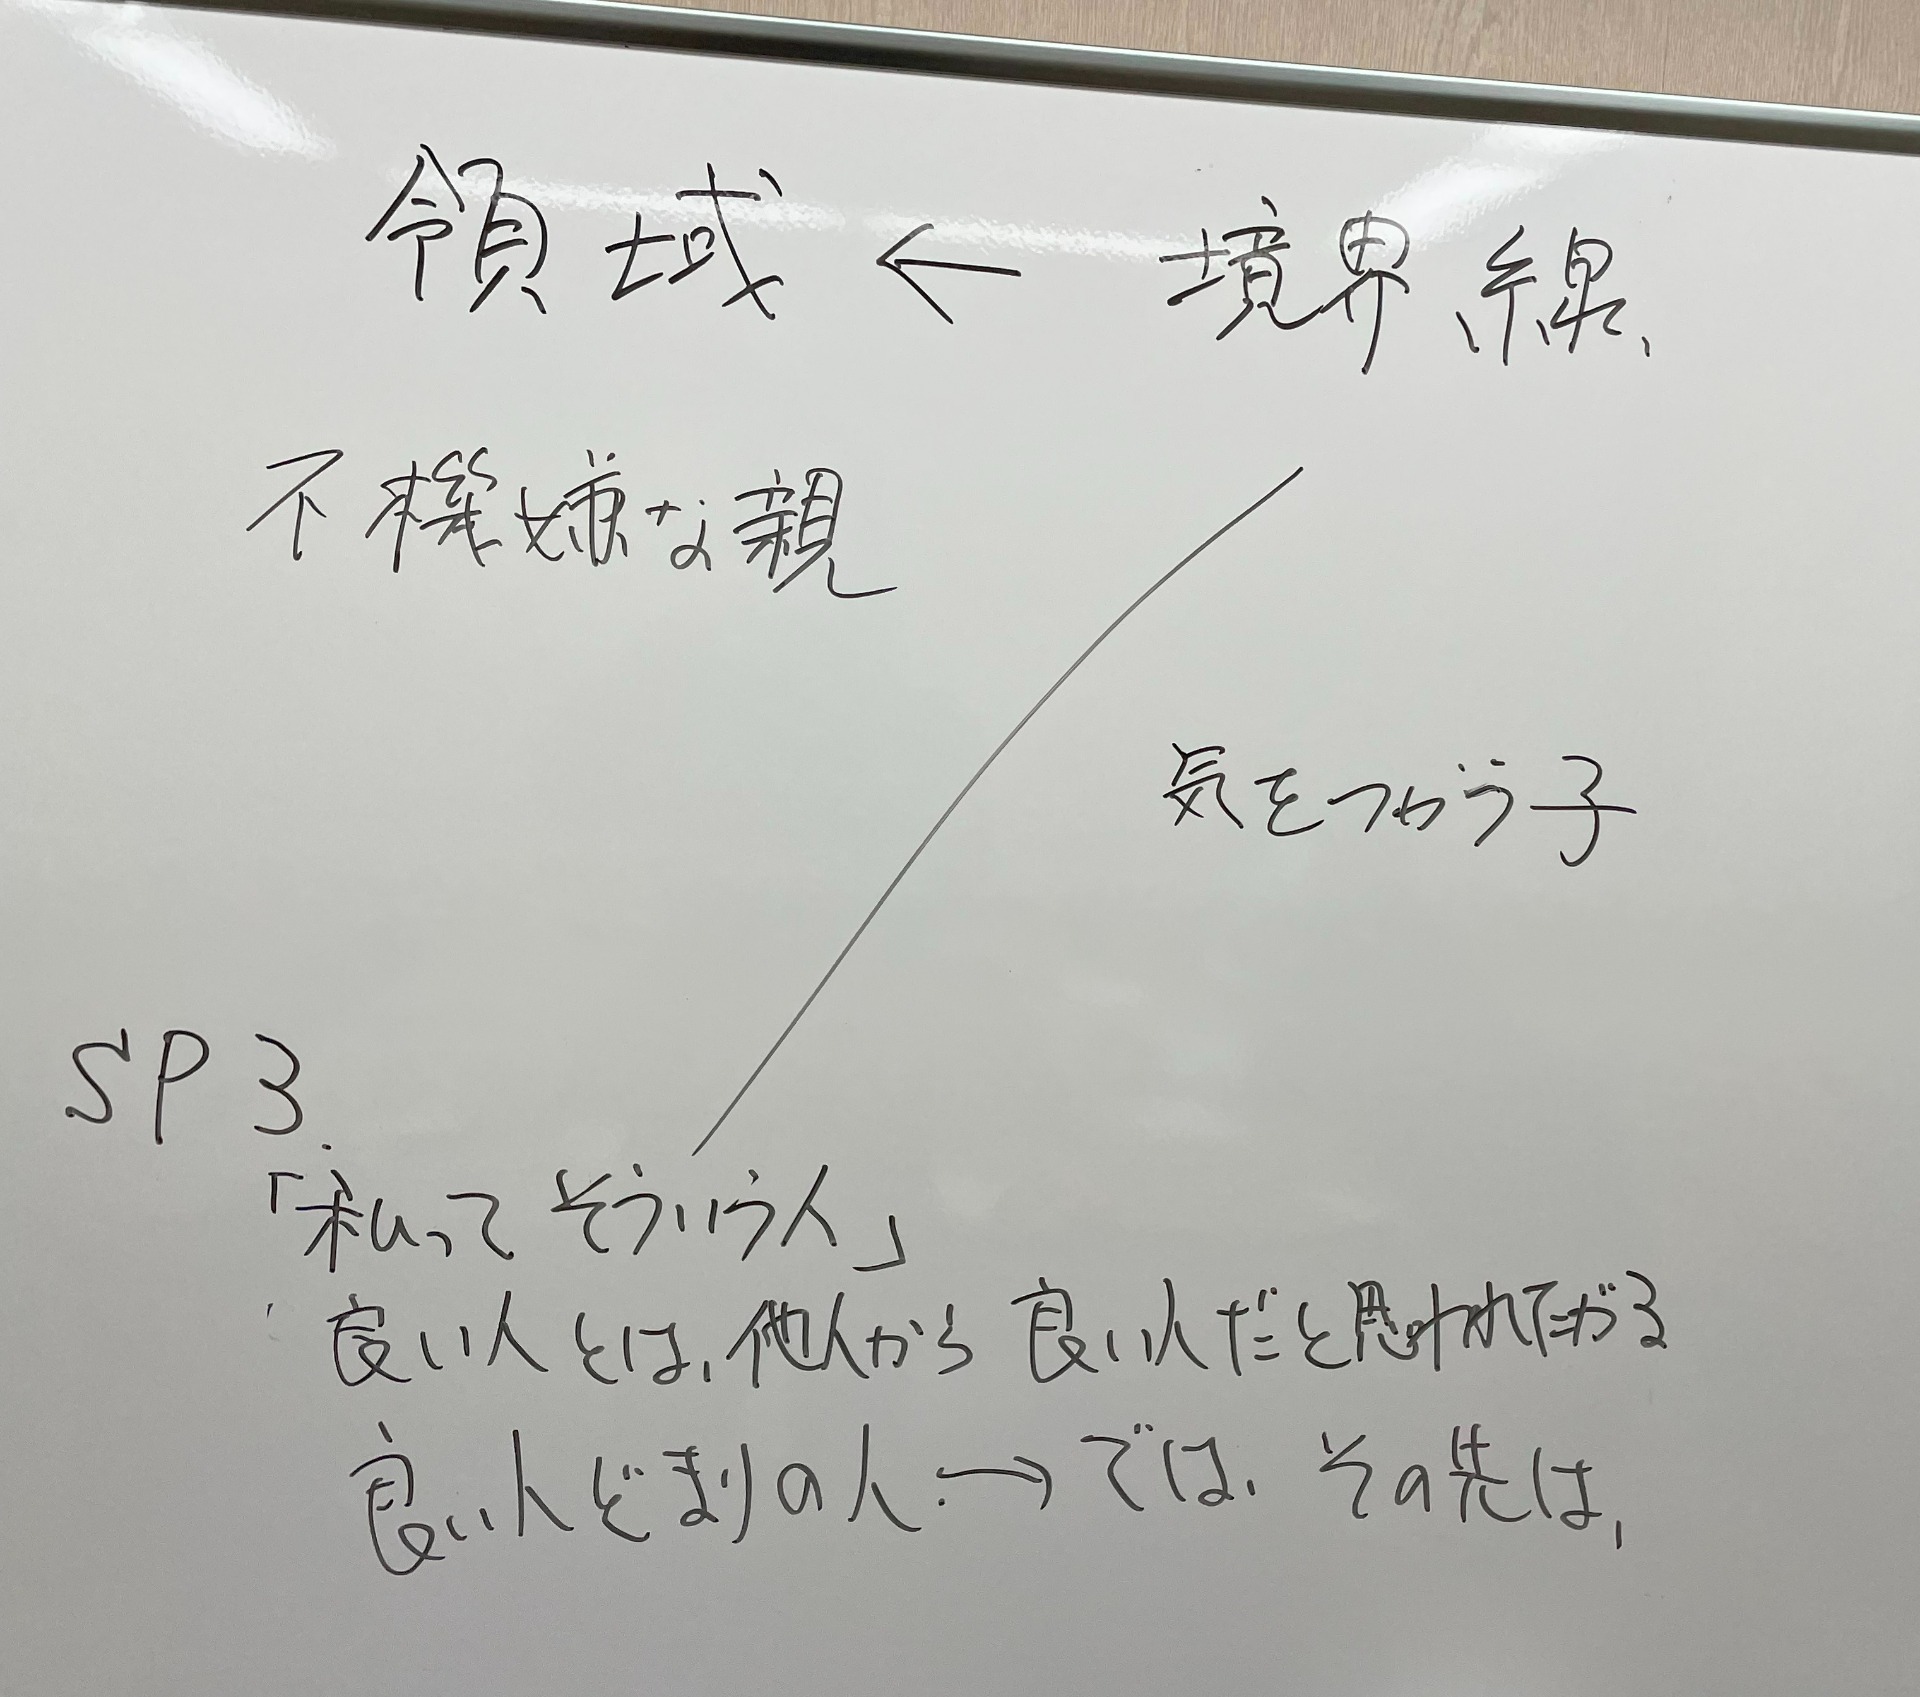 領域 ← 境界線
不機嫌な親
気をつかう子
SP3.
「私ってそういう人」
良い人とは、他人から良い人だと思われたがる
良い人どまりの人 → では、その先は、